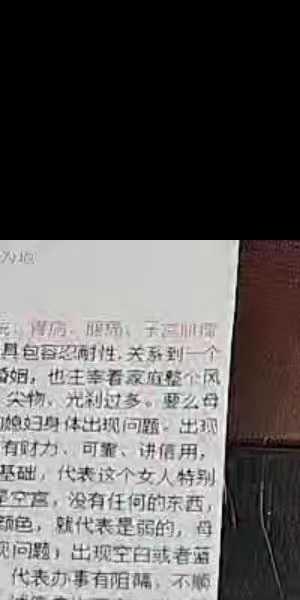 为地
胃病、腰痛、子宫肌瘤
具包容忍耐性，关系到一个
婚姻，也主宰着家庭整个风
尖物、光刹过多。要么母
媳妇身体出现问题。出现
有财力、可靠、讲信用，
基础，代表这个女人特别
是空宫，没有任何的东西，
颜色，就代表是弱的，母
现问题；出现空白或者蓝
代表办事有阻隔，不顺